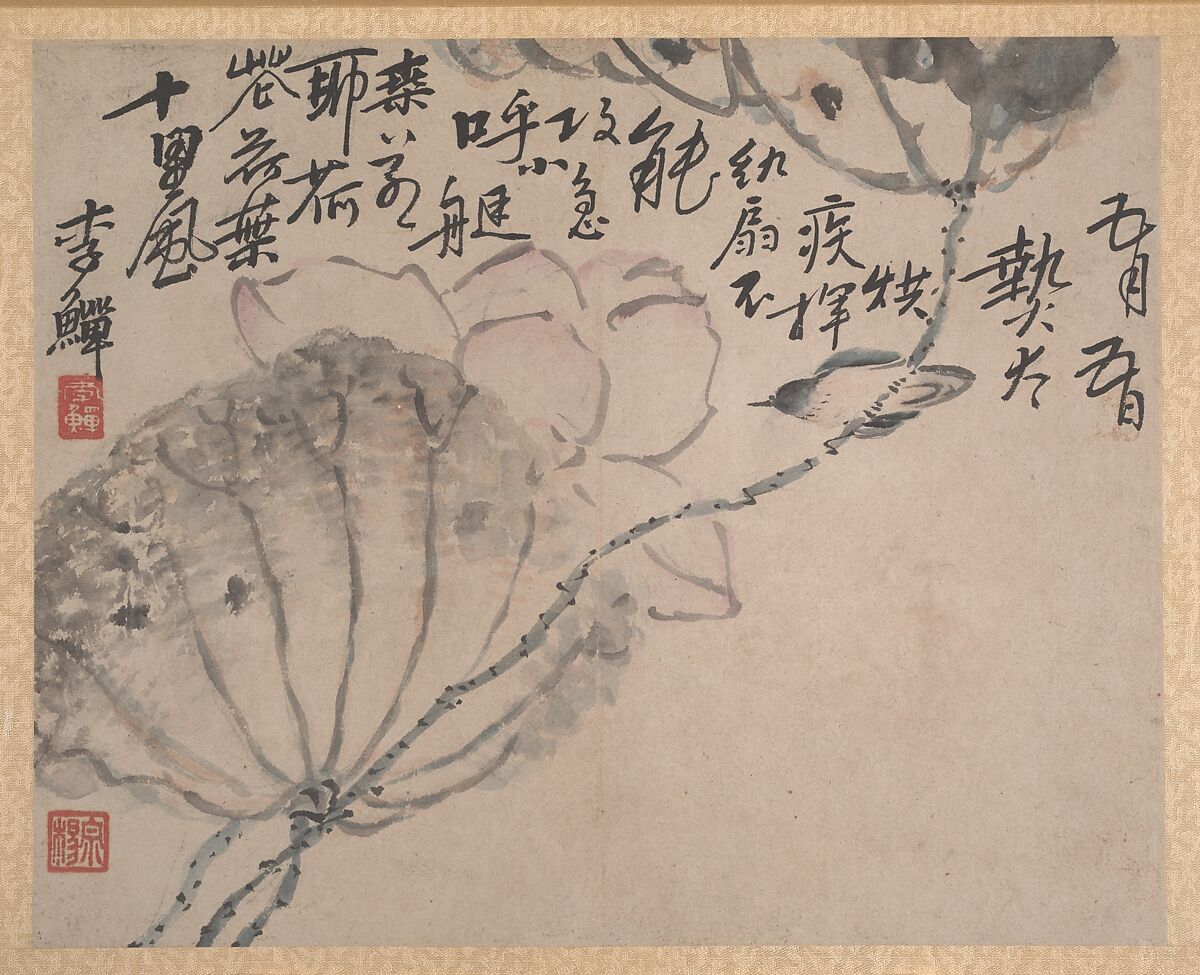 五月五日
熱太
烘
疾揮
紈扇不
能
攻急
呼小艇
入若
耶荷
花荷葉
十里風
李鱓
李鱓
宗揚